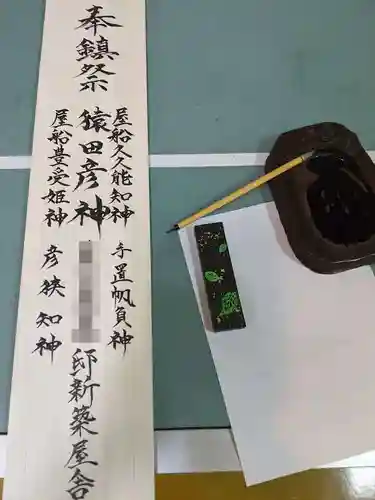 奉鎮祭
屋船久久能知神
手置帆負神
猿田彦神
邸新築屋舎
屋船豊受姫神
彦狭知神